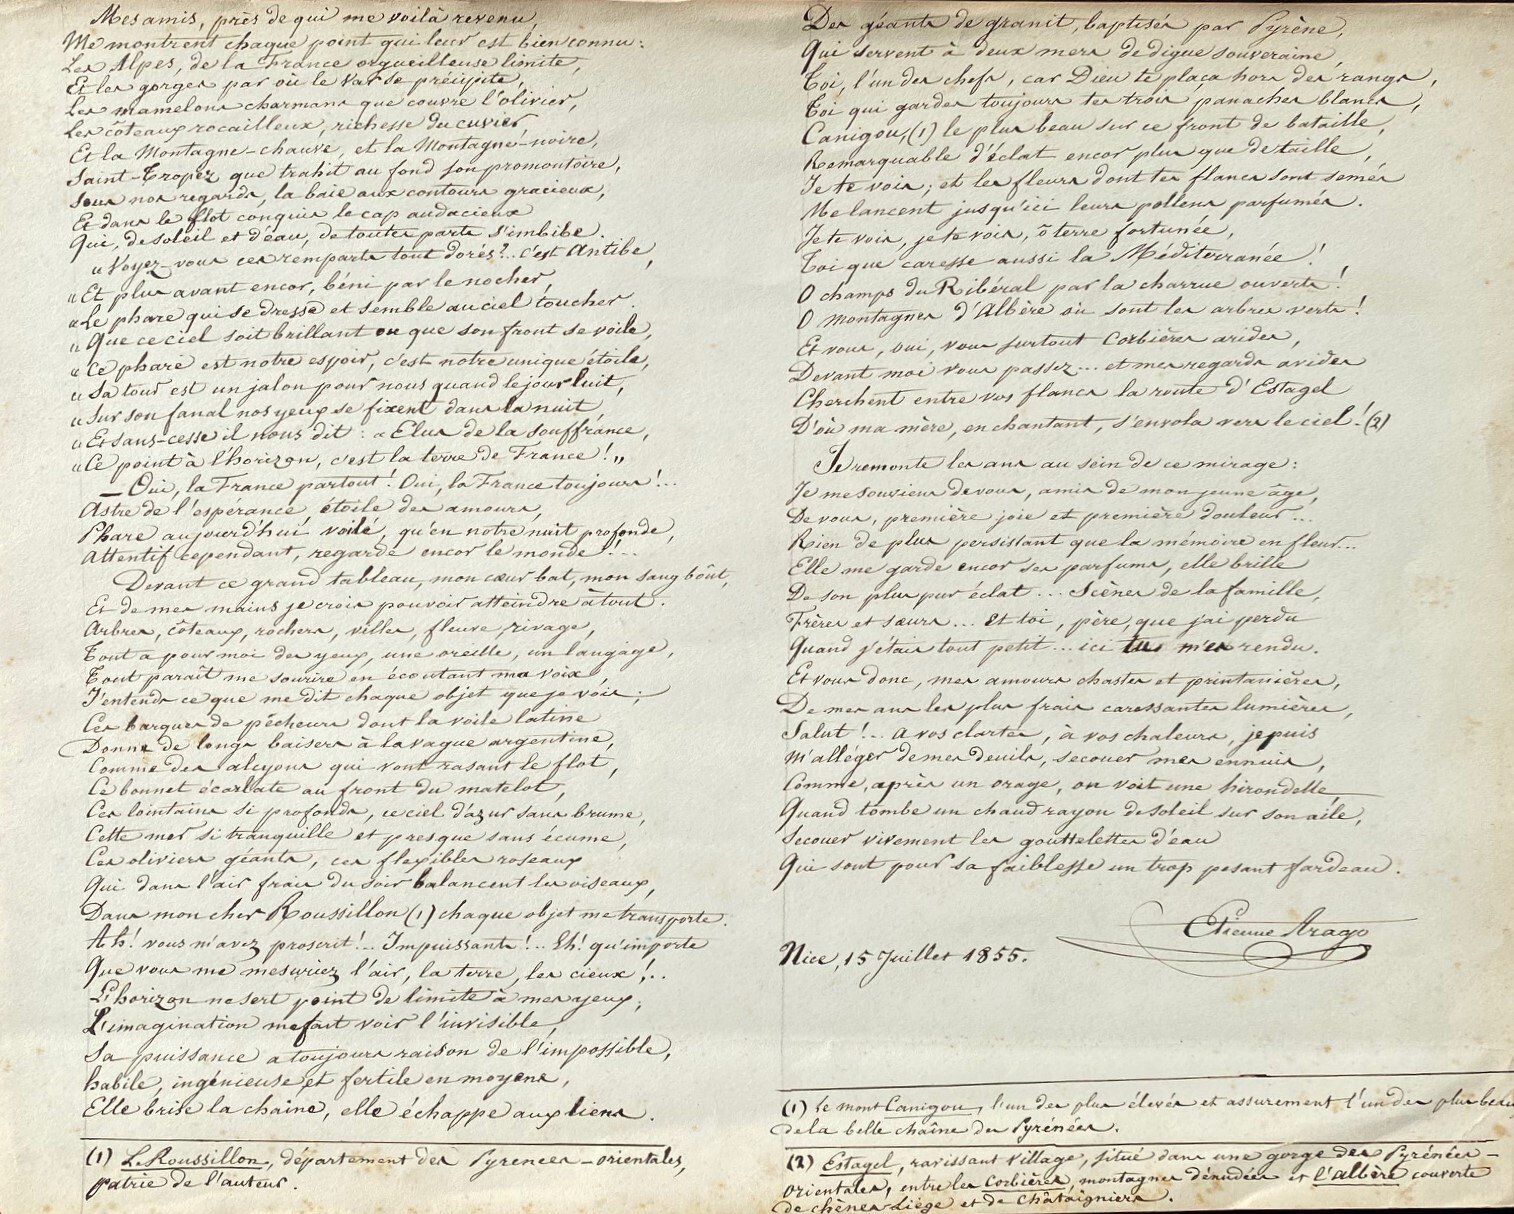 Mes amis, près de qui me voilà revenu,
Me montrent chaque point qui leur est bien connu :
Les Alpes, de la France orgueilleuse limite,
Et les gorges par où le Var se précipite,
Les mamelons charmans que couvre l'olivier,
Les côteaux rocailleux, richesse du cuvier,
Et la Montagne-chauve, et la Montagne-noire,
Saint-Tropez que trahit au fond son promontoire,
Sous nos regards, la baie aux contours gracieux,
Et dans le flot conquis le cap audacieux
Qui, de soleil et d'eau, de toutes parts s'imbibe.
« Voyez-vous ces remparts tout dorés ?.. c'est Antibe,
« Et plus avant encor, béni par le nocher,
« Le phare qui se dresse et semble au ciel toucher.
« Que ce ciel soit brillant ou que son front se voile,
« Ce phare est notre espoir, c'est notre unique étoile,
« Sa tour est un jalon pour nous quand le jour luit,
« Sur son fanal nos yeux se fixent dans la nuit,
« Et sans-cesse il nous dit : « Élus de la souffrance,
« Ce point à l'horizon, c'est la terre de France ! »
— Oui, la France partout ! Oui, la France toujours !...
Astre de l'espérance, étoile des amours,
Phare aujourd'hui voilé, qu'en notre nuit profonde,
Attentif cependant, regarde encor le monde !...
Devant ce grand tableau, mon cœur bat, mon sang bôut,
Et de mes mains je crois pouvoir atteindre à tout.
Arbres, côteaux, rochers, villes, fleuve, rivage,
Tout a pour moi des yeux, une oreille, un langage,
Tout paraît me sourire en écoutant ma voix,
J'entends ce que me dit chaque objet que je vois ;
Ces barques de pêcheurs dont la voile latine
Donne de longs baisers à la vague argentine,
Comme des alcyons qui vont rasant le flot,
Ce bonnet écarlate au front du matelot,
Ces lointains si profonds, ce ciel d'azur sans brume,
Cette mer si tranquille et presque sans écume,
Ces oliviers géants, ces flexibles roseaux
Qui dans l'air frais du soir balancent les oiseaux,
Dans mon cher Roussillon (1) chaque objet me transporte.
Ah ! vous m'avez proscrit !... Impuissants !... Eh ! qu'importe
Que vous me mesuriez l'air, la terre, les cieux !..
L'horizon ne sert point de limite à mes yeux ;
L'imagination me fait voir l'invisible,
Sa puissance a toujours raison de l'impossible,
habile, ingénieuse et fertile en moyens,
Elle brise la chaîne, elle échappe aux liens.
(1) Le Roussillon, département des Pyrenées-orientales,
patrie de l'auteur.
Des géants de granit, baptisés par Pyrène,
Qui servent à deux mers de digue souveraine,
Toi, l'un des chefs, car Dieu te plaça hors des rangs,
Toi qui gardes toujours tes trois panaches blancs,
Canigou, (1) le plus beau sur ce front de bataille,
Remarquable d'éclat encor plus que de taille,
Je te vois ; et les fleurs dont tes flancs sont semés
Me lancent jusqu'ici leurs pollens parfumés.
Je te vois, je te vois, ô terre fortunée,
Toi que caresse aussi la Méditerranée !
O champs du Ribéral par la charrue ouverts !
O montagnes d'Albère où sont les arbres verts !
Et vous, oui, vous surtout Corbières arides,
Devant moi vous passez... et mes regards avides
Cherchent entre vos flancs la route d'Estagel
D'où ma mère, en chantant, s'envola vers le ciel ! (2)
Je remonte les ans au sein de ce mirage :
Je me souviens de vous, amis de mon jeune âge,
De vous, première joie et première douleur...
Rien de plus persistant que la mémoire en fleur...
Elle me garde encor ses parfums, elle brille
De son plus pur éclat... Scènes de la famille,
Frères et sœurs... Et toi, père, que j'ai perdu
Quand j'étais tout petit... ici tu m'es rendu.
Et vous donc, mes amours chastes et printanières,
De mes ans les plus frais caressantes lumières,
Salut !... A vos clartés, à vos chaleurs, je puis
M'alléger de mes deuils, secouer mes ennuis,
Comme, après un orage, on voit une hirondelle
Quand tombe un chaud rayon de soleil sur son aîle,
Secouer vivement les gouttelettes d'eau
Qui sont pour sa faiblesse un trop pesant fardeau.
Etienne Arago
Nice, 15 Juillet 1855.
(1) Le mont Canigou, l'un des plus élevés et assurement l'un des plus beaux
de la belle chaîne des Pyrénées.
(2) Estagel, ravissant village, situé dans une gorge des Pyrénées-
orientales, entre les Corbières, montagnes dénudées et l'Albère couverte
de chênes-liège et de châtaigniers.